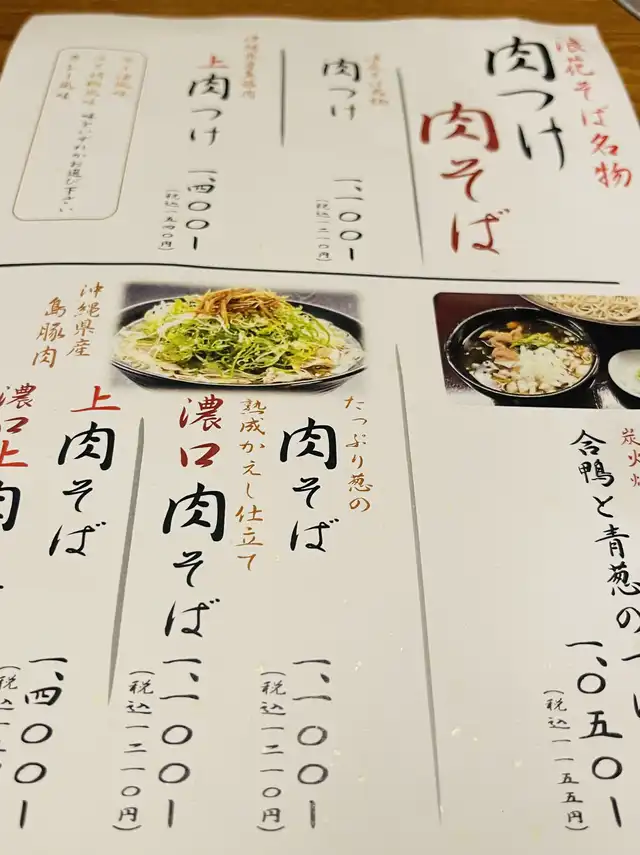 浪花そば名物
肉つけ
肉そば
肉つけ
一、一〇〇ー
(税込一二一〇円)
上肉つけ
一、四〇〇ー
(税込一五四〇円)
お選び下さい
合鴨と青葱の
一、〇五〇ー
(税込一一五五円)
たっぷり葱の
肉そば
一、一〇〇ー
(税込一二一〇円)
熟成かえし仕立て
濃口肉そば
一、一〇〇ー
(税込一二一〇円)
沖縄県産
島豚肉
上肉そば
一、四〇〇ー
濃口上肉